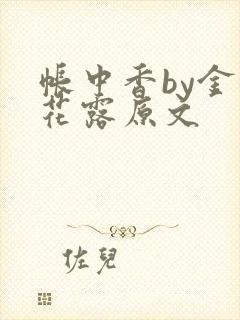 帐中香by金
花露原文
佐兒